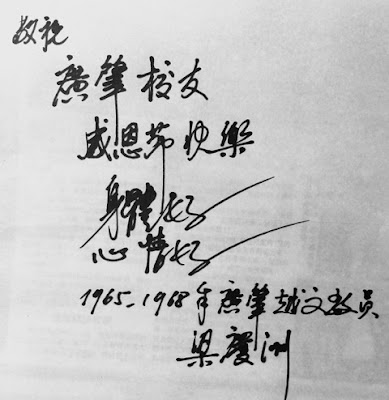 敬祝
廣肇校友
感恩节快樂
身體好
心情好
1965-1968年廣肇越文教員
梁慶洲